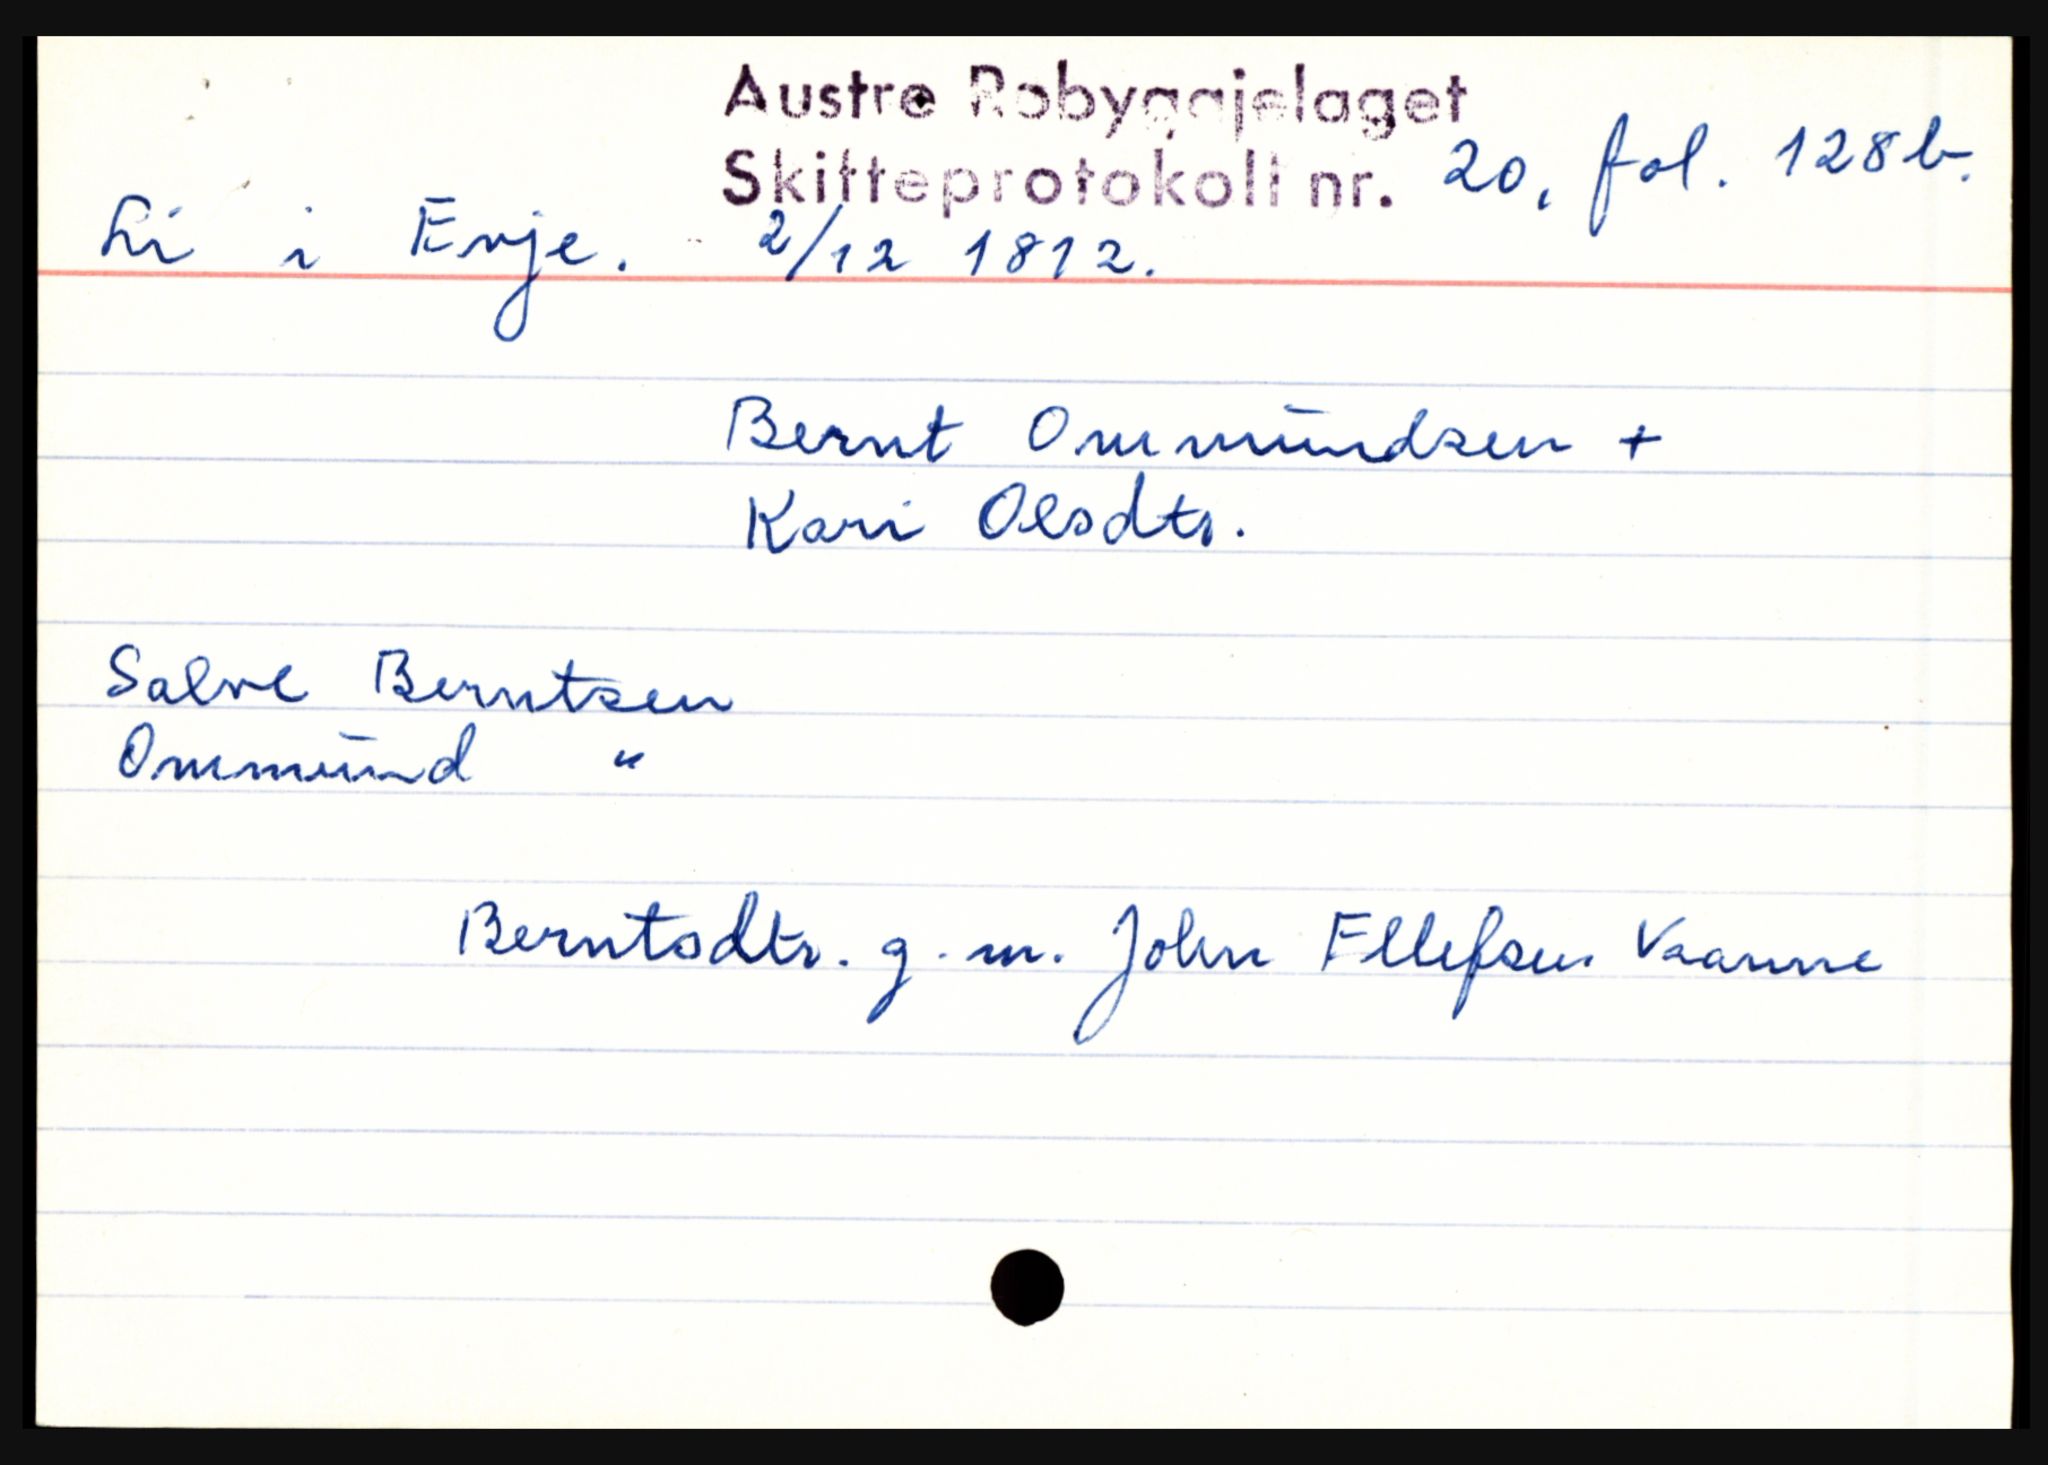 Austre Robyggjelaget
Skifteprotokoll nr. 20, fol. 128b.
Li i Evje. 2/12 1812.
Bernt Ommundsen +
Kari Olsdtr.
Salve Berntsen
Ommund "
Berntsdtr. g. m. John Ellefsen Vaanne